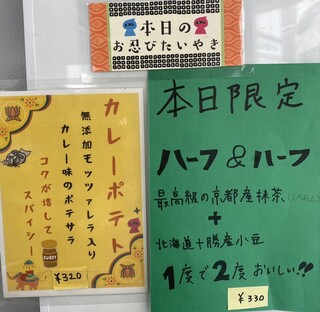 本日の
お忍びたいやき
カレーポテト
無添加モッツァレラ入り
カレー味のポテサラ
コクが増して
スパイシー
CURRY
¥320
本日限定
ハーフ&ハーフ
最高級の京都産抹茶
+
北海道十勝産小豆
1度で2度おいしい!!
¥330